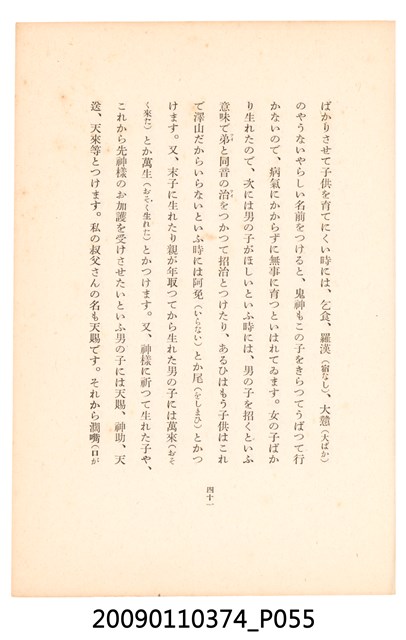 ばかりさせて子供を育てにくい時には、乞食、羅漢（宿なし）、大憨（大ばか）
のやうないやらしい名前をつけると、鬼神もこの子をきらつてうばつて行
かないので、病氣にかからずに無事に育つといはれてゐます。女の子ばか
り生れたので、次には男の子がほしいといふ時には、男の子を招くといふ
意味で弟と同音の治をつかつて招治とつけたり、あるひはもう子供はこれ
で澤山だからいらないといふ時には阿免（いらない）とか尾（をしまひ）とかつ
けます。又、末子に生れたり親が年取つてから生れた男の子には萬來（おそ
く來た）とか萬生（おそく生れた）とかつけます。又、神樣に祈つて生れた子や、
これから先神樣のお加護を受けさせたいといふ男の子には天賜、神助、天
送、天來等とつけます。私の叔父さんの名も天賜です。それから濶嘴（口が
四十一
20090110374_P055